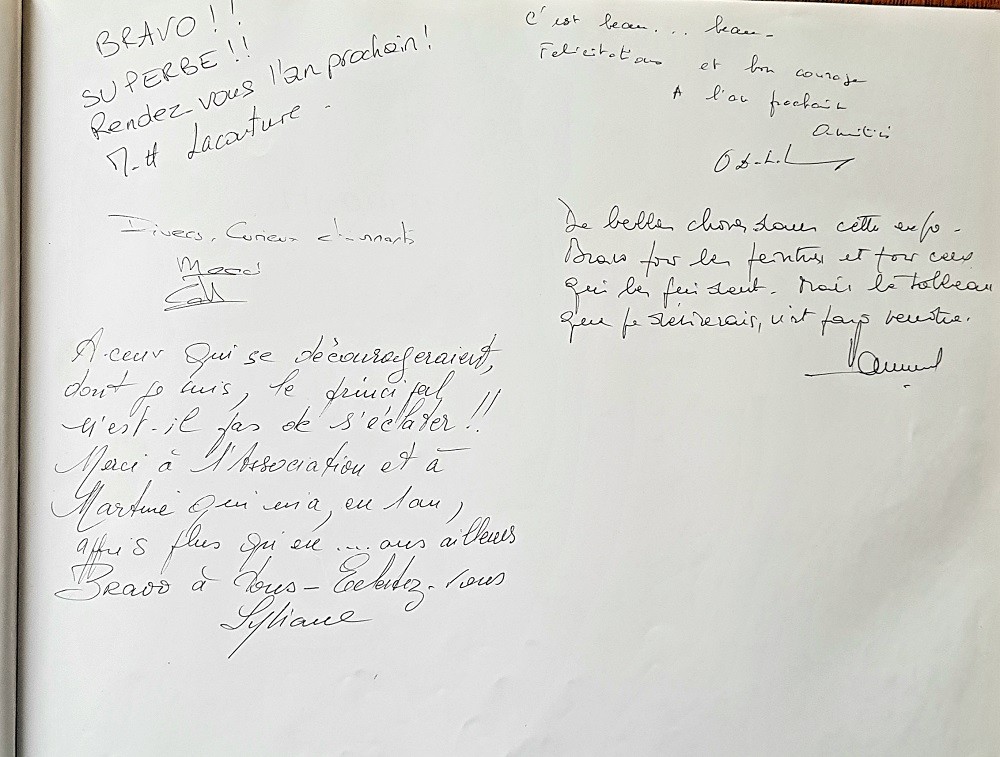 BRAVO !!
SUPERBE !!
Rendez vous l'an prochain !
M-H Lacouture -
Divers, Curieux étonnants
Merci
A ceux qui se décourageraient,
dont je suis, le principal
n'est-il pas de s'éclater !!
Merci à l'Association et à
Martine qui m'a, en 1 an,
appris plus qu'en ... ans ailleurs
Bravo à Tous - Eclatez-vous
Syliane
C'est beau... beau -
Félicitations et bon courage
A l'an prochain
Amitiés
De belles choses dans cette expo -
Bravo pour les peintres et pour ceux
qui les font. Mais le tableau
que je désirerais, n'est pas à vendre.